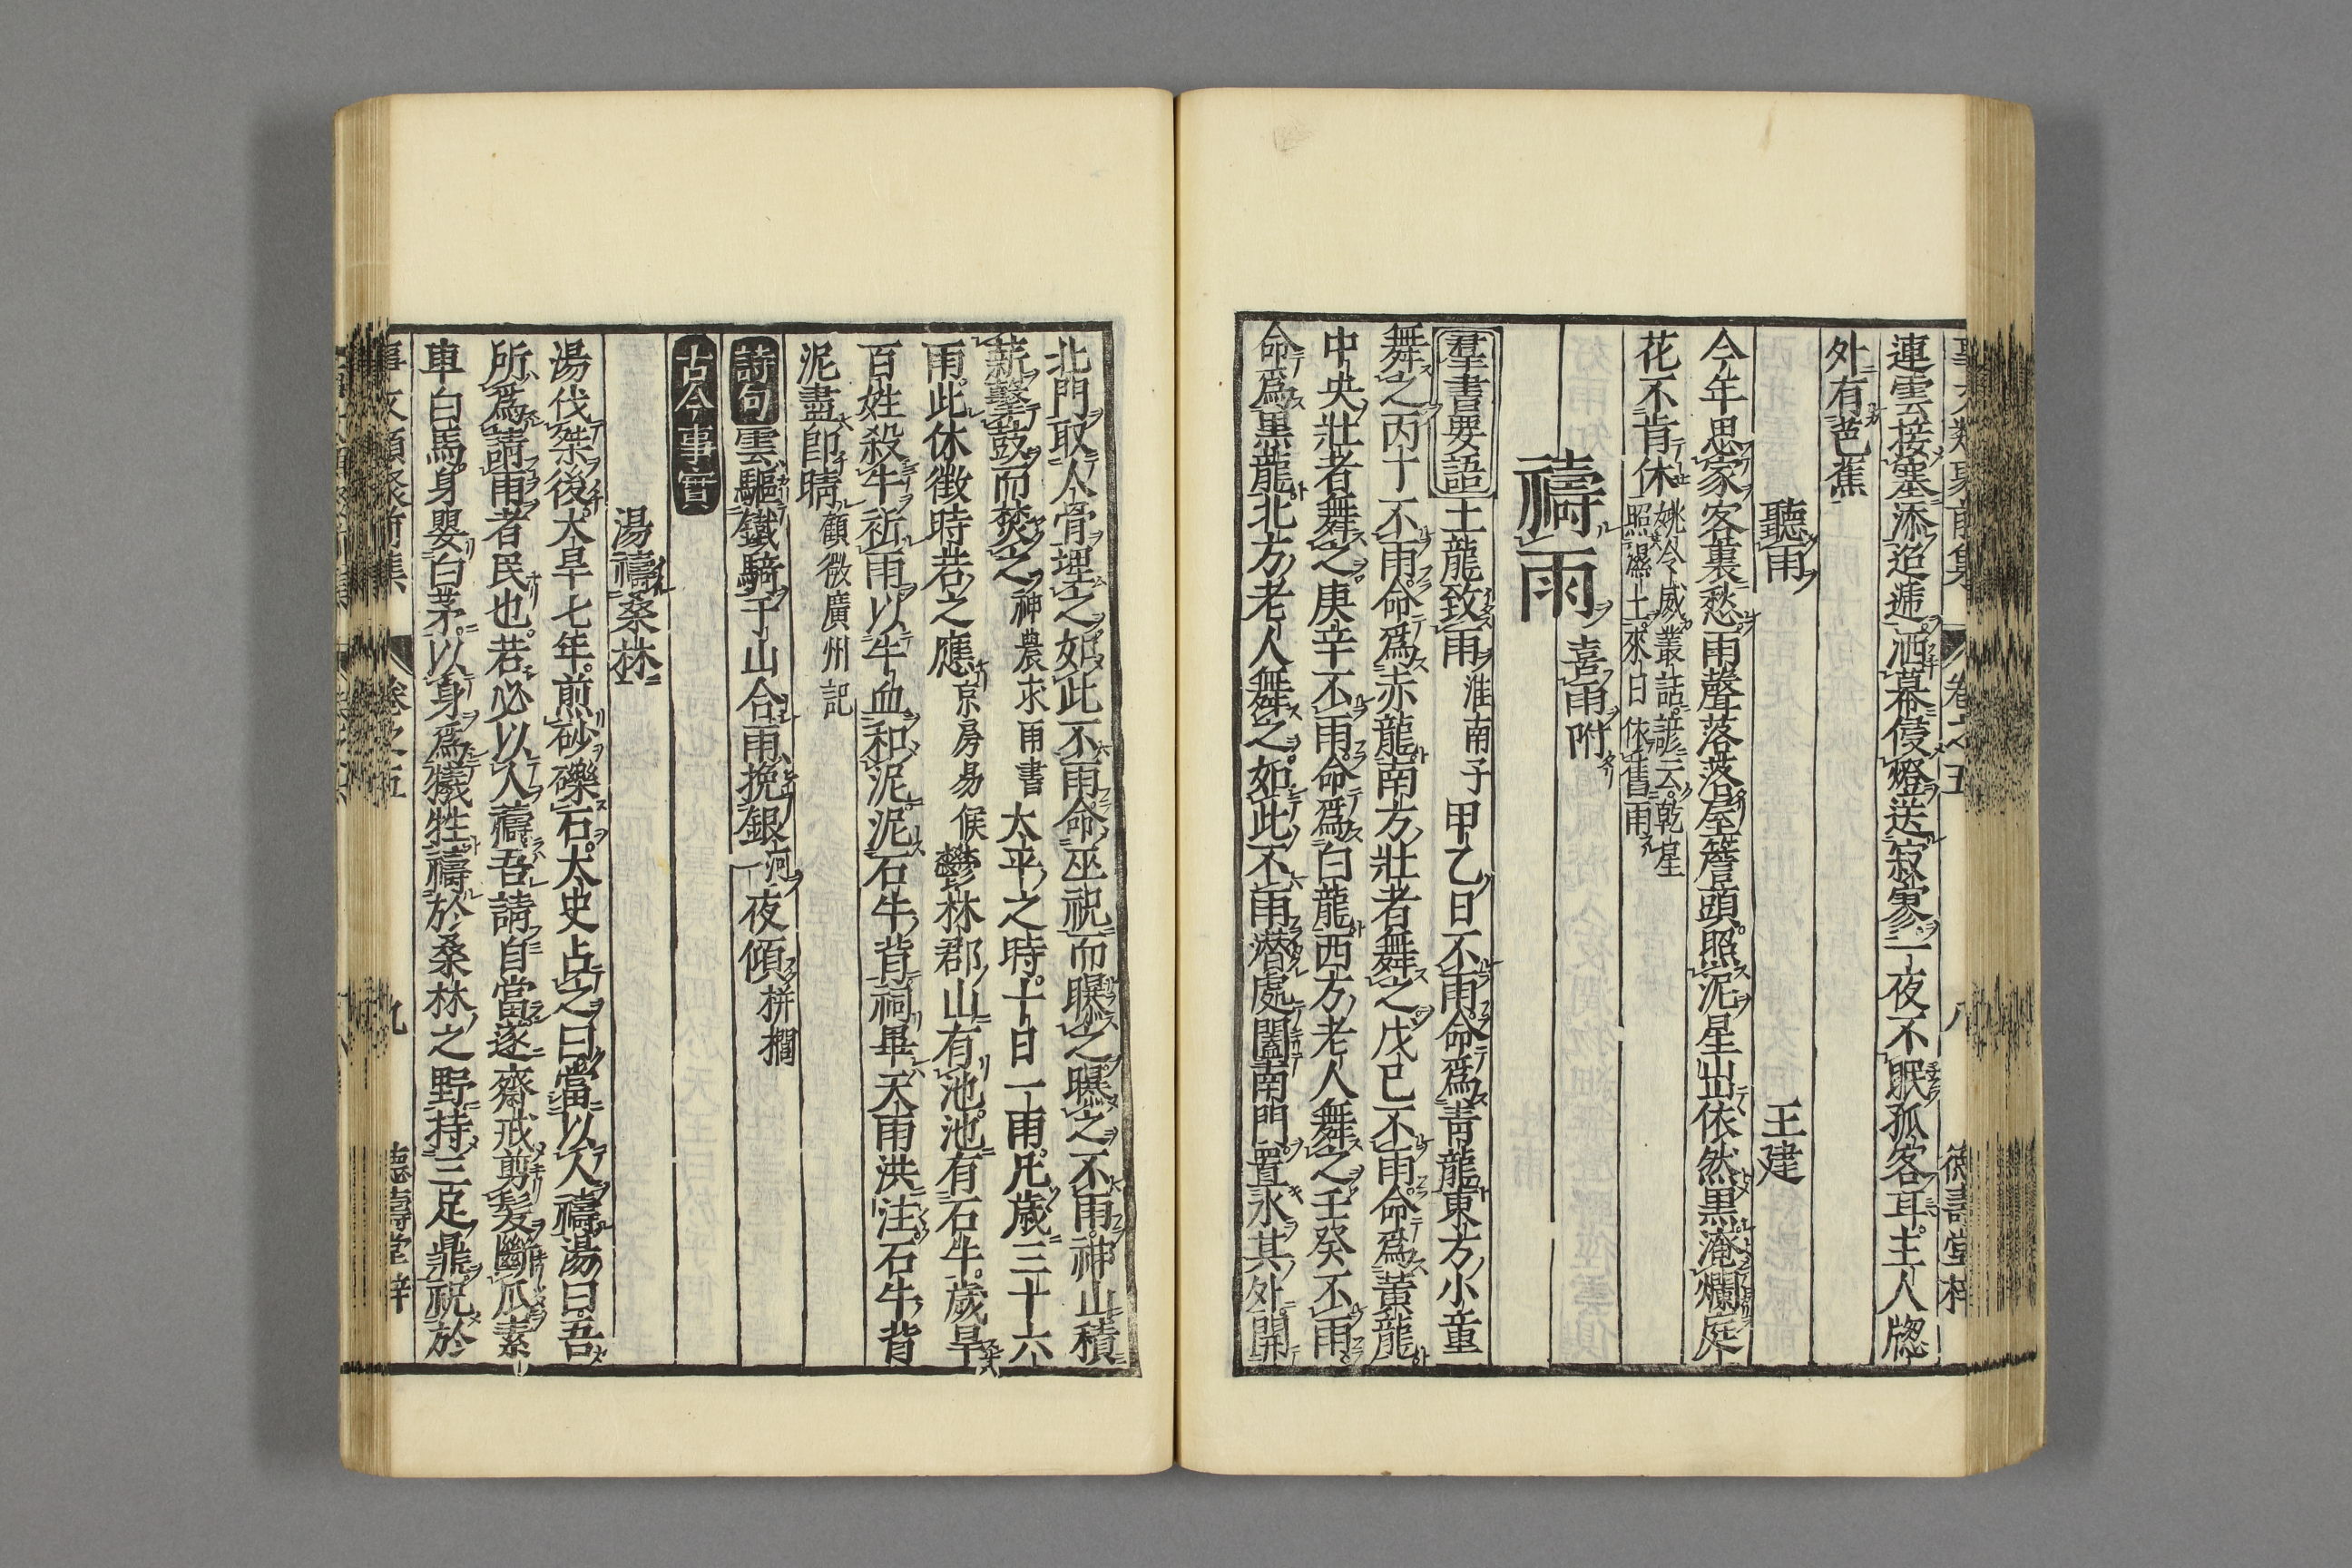 連雲接塞添迢遞洒幕侵燈送寂寥一夜不眠孤客耳主人牕
外有芭蕉
聽雨 王建
今年思家客裏愁雨聲落落屋簷頭照泥星出依然黒淹爛庭
花不肯休
姚令威叢話諺云乾星
照濕土來日依舊雨
禱雨
喜雨附
羣書要語 土龍致雨 淮南子 甲乙日不雨命爲青龍東方小童
舞之丙丁不雨命爲赤龍南方壯者舞之戊已不雨命爲黃龍
中央壯者舞之庚辛不雨命爲白龍西方老人舞之壬癸不雨
命爲黒龍北方老人舞之如此不雨潜處闔南門置水其外開
北門取人骨埋之如此不雨命巫祝而曝之曝之不雨神山積
薪擊鼓而焚之 神農求雨書 太平之時十日一雨凡歳三十六
雨此休徴時若之應 京房易候 鬱林郡山有池池有石牛歳旱
百姓殺牛祈雨以牛血和泥泥石牛背祠畢天雨洪注石牛背
泥盡即晴 顧微廣州記
詩句 雲驅鐵騎千山合雨挽銀河一夜傾 栟櫚
古今事實
湯禱桑林
湯伐桀後大旱七年煎砂礫石太史占之曰當以人禱湯曰吾
所爲請雨者民也若必以人禱吾請自當遂齋戒剪髪斷爪素
車白馬身嬰白茅以身爲犠牲禱於桑林之野持三足鼎祝於
事文類聚前集 卷之五 九 德壽堂梓